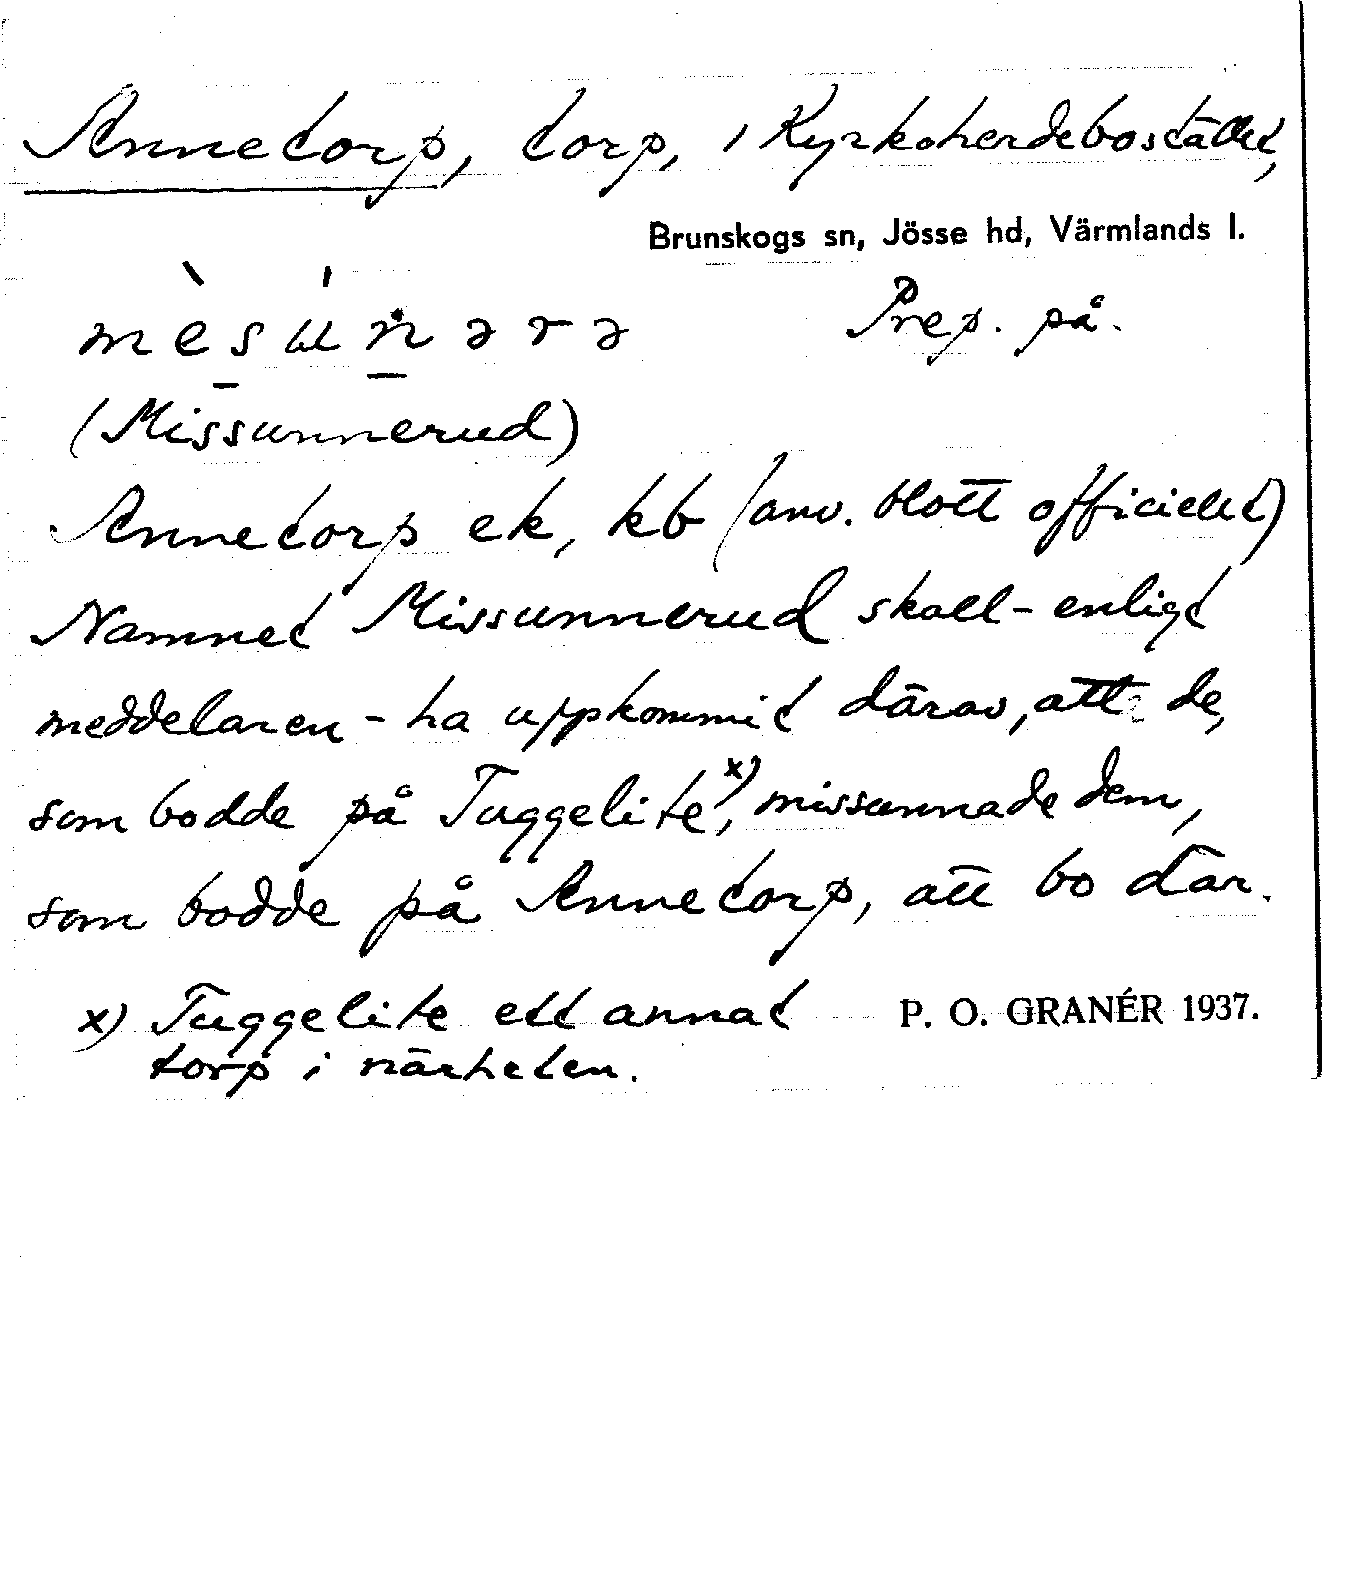 Annetorp, torp, / Kyrkoherdebostället,
Brunskogs sn, Jösse hd, Värmlands l.
mèsu̍nərə Prep. på.
(Missunnerud)
Annetorp ek, kb (anv. blott officiellt)
Namnet Missunnerud skall - enligt
meddelaren - ha uppkommit därav, att de,
som bodde på Tuggelite x), missunnade dem,
som bodde på Annetorp, att bo där.
x) Tuggelite ett annat P. O. GRANÉR 1937.
torp i närheten.